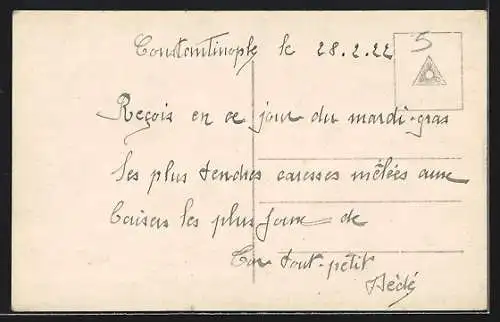 Constantinople le 28.2.22
5
Reçois en ce jour du mardi-gras
les plus tendres caresses mêlées aux
baisers les plus fous de
Ton tout-petit
Dédé